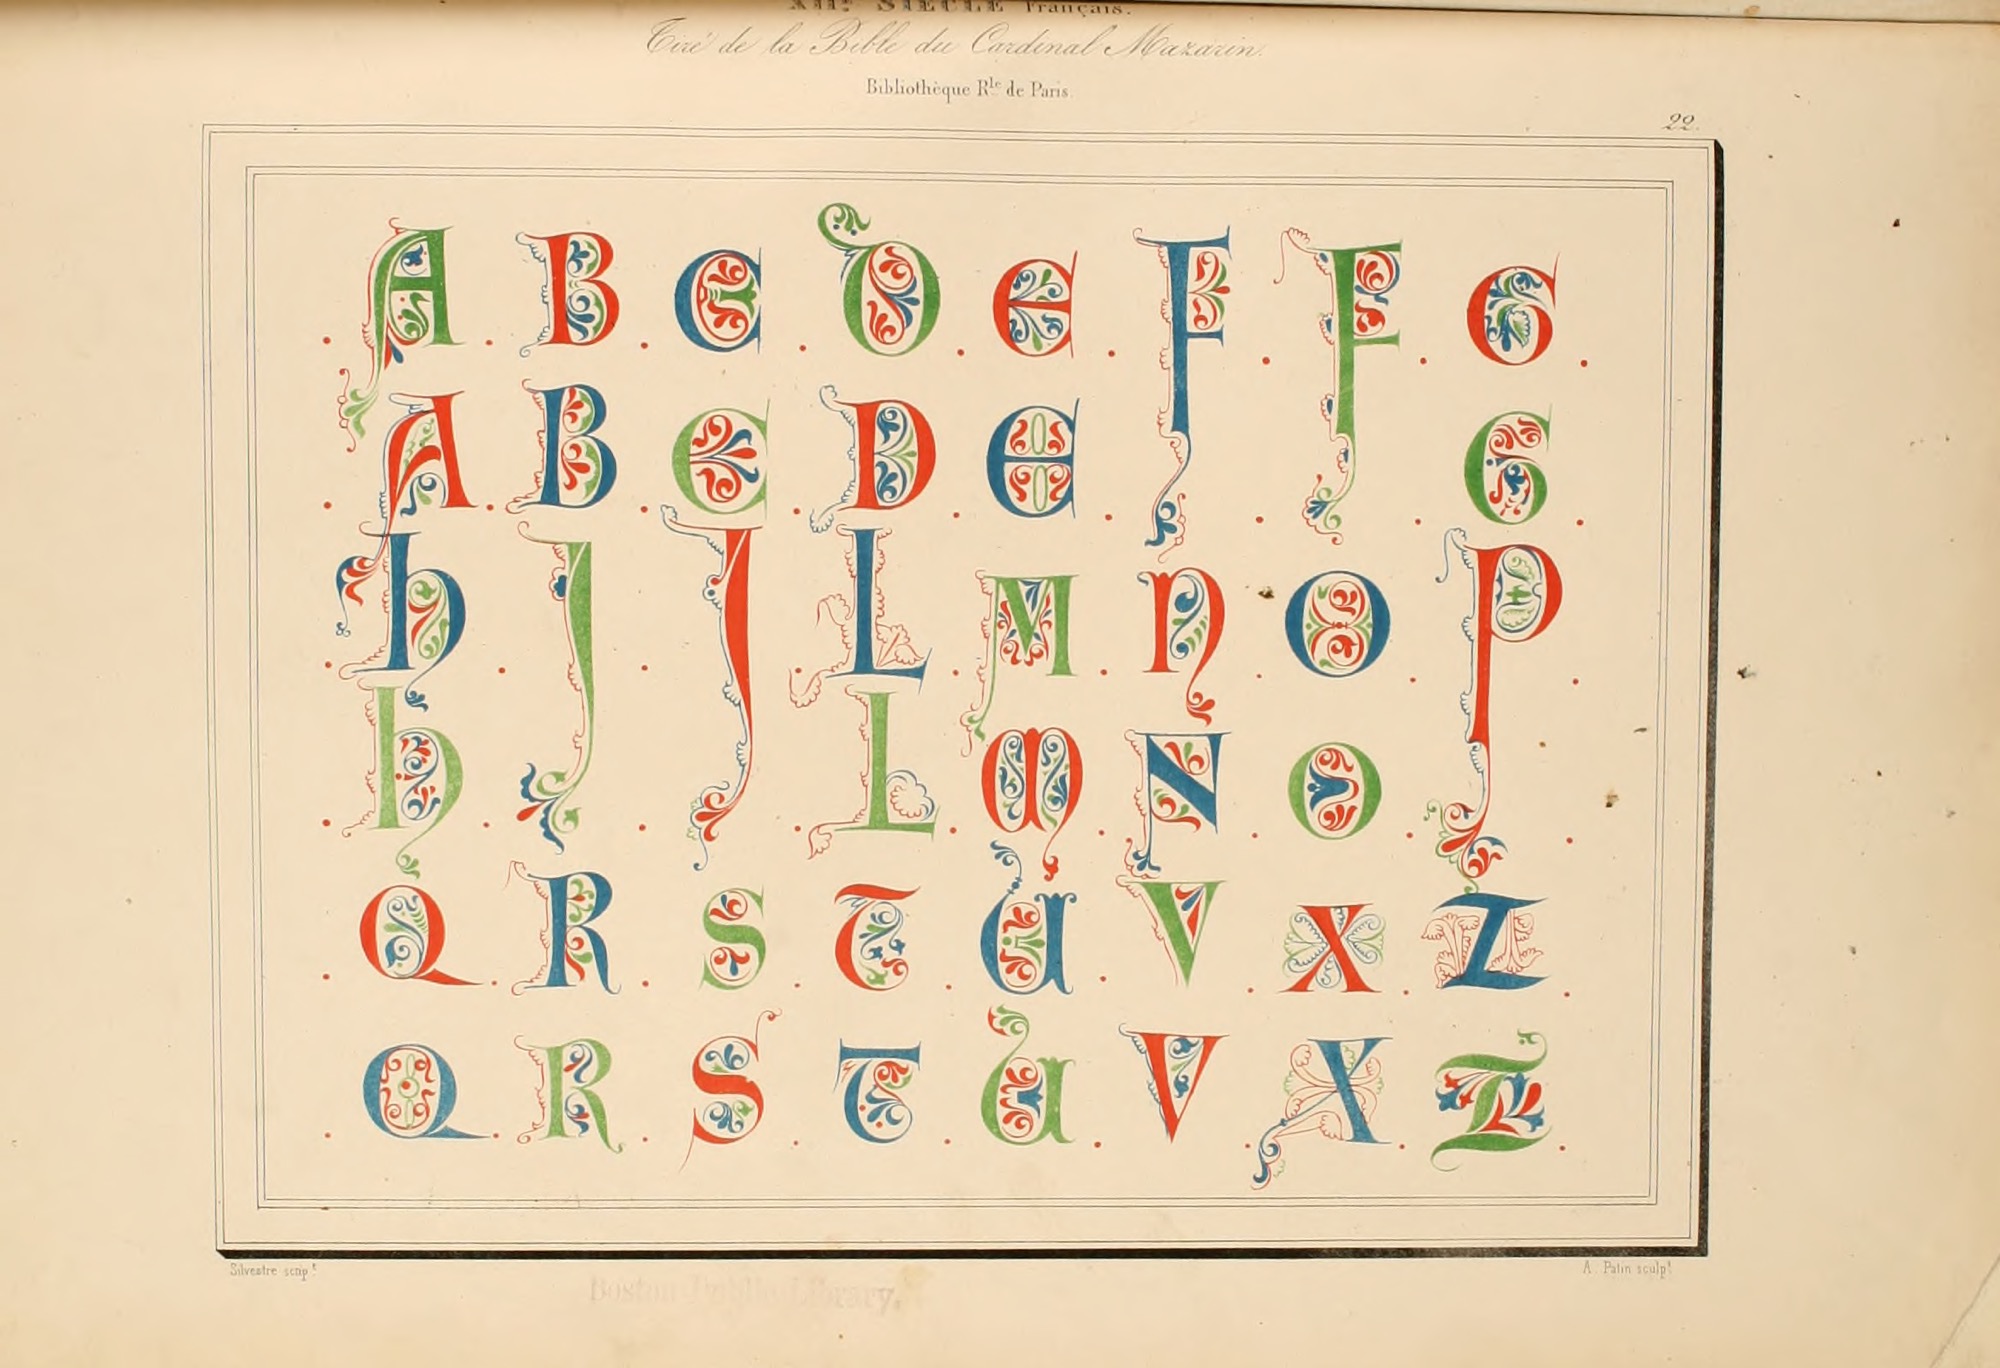 XIIe SIÈCLE Français.
Tiré de la Bible du Cardinal Mazarin.
Bibliothèque Rle de Paris.
22.
A B C D E F F G
A B C D E G
h I I L M N O P
h L M N O
Q R S T U V X Z
Q R S T U V X Z
Silvestre script.
A. Patin sculpt.
Boston Public Library.